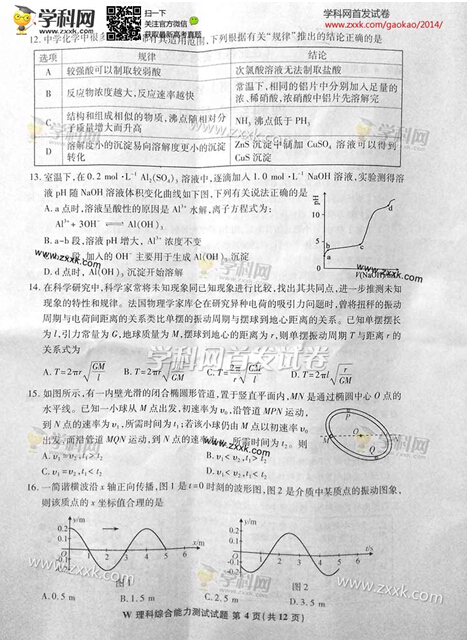 学科网
WWW.ZXXK.COM
扫一下
关注官方微信
获取最新高考真题
学科网首发试卷
www.zxxk.com/gaokao/2014/
12. 中学化学中很多 其适用范围,下列根据有关“规律”推出的结论正确的是
选项 规律 结论
A 较强酸可以制取较弱酸 次氯酸溶液无法制取盐酸
B 反应物浓度越大,反应速率越快 常温下,相同的铝片中分别加入足量的浓、稀硝酸,浓硝酸中铝片先溶解完
C 结构和组成相似的物质,沸点随相对分子质量增大而升高 NH₃ 沸点低于 PH₃
D 溶解度小的沉淀易向溶解度更小的沉淀转化 ZnS 沉淀中滴加 CuSO₄ 溶液可以得到 CuS 沉淀
13. 室温下,在 0.2 mol·L⁻¹ Al₂(SO₄)₃ 溶液中,逐滴加入 1.0 mol·L⁻¹ NaOH 溶液,实验测得溶
液 pH 随 NaOH 溶液体积变化曲线如下图,下列有关说法正确的是
A. a 点时,溶液呈酸性的原因是 Al³⁺ 水解,离子方程式为:
Al³⁺ + 3OH⁻ ⇌ Al(OH)₃
B. a~b 段,溶液 pH 增大, Al³⁺ 浓度不变
段,加入的 OH⁻ 主要用于生成 Al(OH)₃ 沉淀
D. d 点时, Al(OH)₃ 沉淀开始溶解
pH
10
5
0
a
b
c
d
V(NaOH)
14. 在科学研究中,科学家常将未知现象同已知现象进行比较,找出其共同点,进一步推测未知
现象的特性和规律。法国物理学家库仑在研究异种电荷的吸引力问题时,曾将扭秤的振动
周期与电荷间距离的关系类比单摆的振动周期与摆球到地心距离的关系。已知单摆摆长
为 l,引力常量为 G,地球质量为 M,摆球到地心的距离为 r,则单摆振动周期 T 与距离 r 的
关系式为
A. T=2πr√(GM/l) B. T=2πr√(l/GM) C. T=2π/r √(GM/l) D. T=2πl√(r/GM)
15. 如图所示,有一内壁光滑的闭合椭圆形管道,置于竖直平面内,MN 是通过椭圆中心 O 点的
水平线。已知一小球从 M 点出发,初速率为 v₀,沿管道 MPN 运动,
到 N 点的速率为 v₁,所需时间为 t₁;若该小球仍由 M 点以初速率 v₀
出发,而沿管道 MQN 运动,到 N 点的速率为 v₂,所需时间为 t₂。则
A. v₁=v₂,t₁>t₂ B. v₁<v₂,t₁>t₂
C. v₁=v₂,t₁<t₂ D. v₁<v₂,t₁<t₂
P
M
O
N
Q
16. 一简谐横波沿 x 轴正向传播,图 1 是 t=0 时刻的波形图,图 2 是介质中某质点的振动图象,
则该质点的 x 坐标值合理的是
y/m
0.2
0.1
0
-0.1
1 2 3 4 5 6
x/m
图 1
y/m
0.2
0.1
0
-0.1
1 2 3 4 5 6
t/s
图 2
A. 0.5 m B. 1.5 m C. 2.5 m D. 3.5 m
W 理科综合能力测试试题 第 4 页(共 12 页)
学科网首发试卷
www.zxxk.com